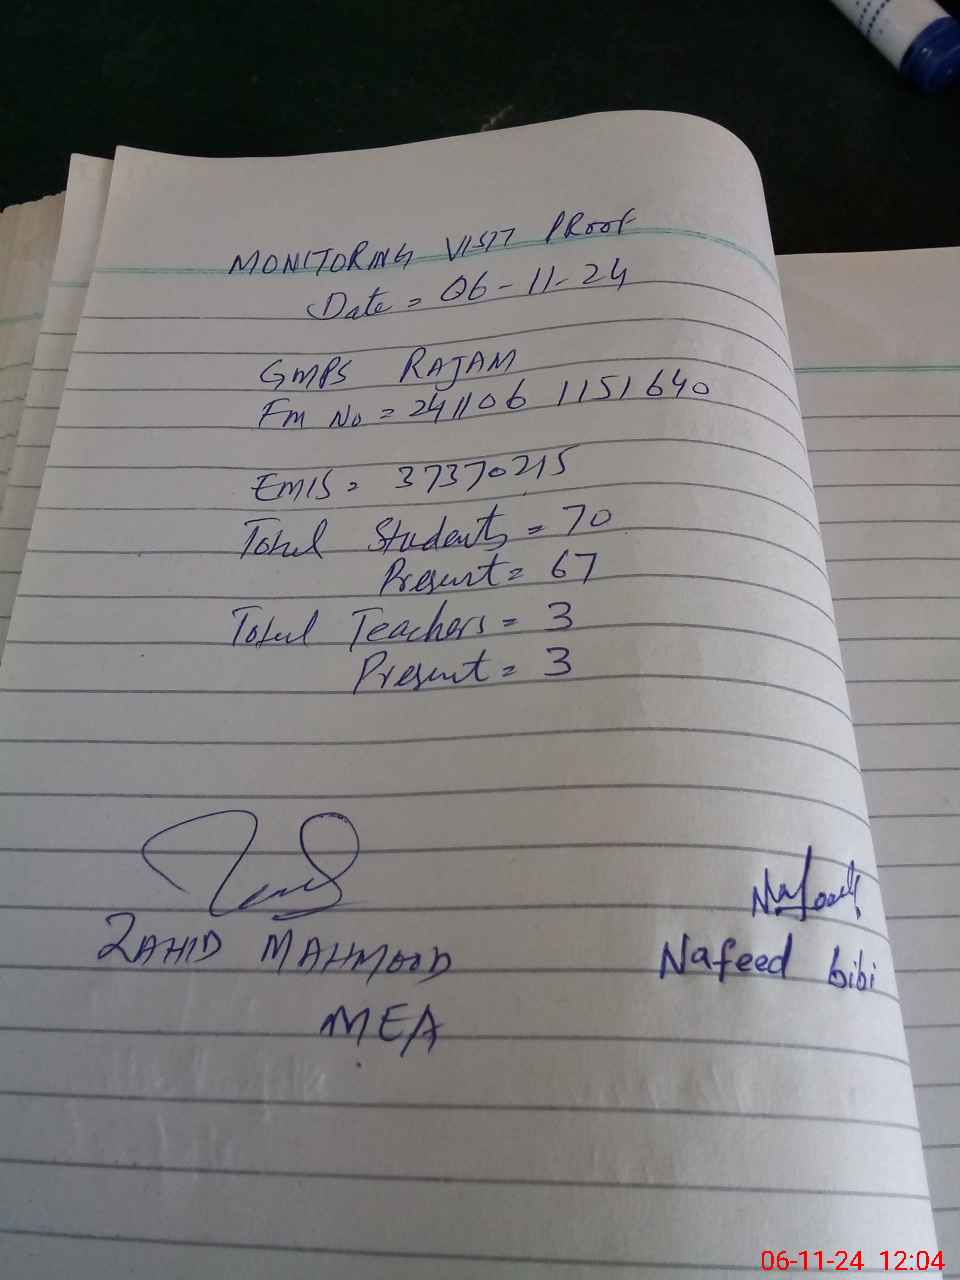 MONITORING VISIT PROOF
Date = 06-11-24
GMPS RAJAM
Fm No = 241106 1151640
EMIS = 37370215
Total Students = 70
Present = 67
Total Teachers = 3
Present = 3
ZAHID MAHMOOD
Nafeed bibi
MEA
06-11-24 12:04